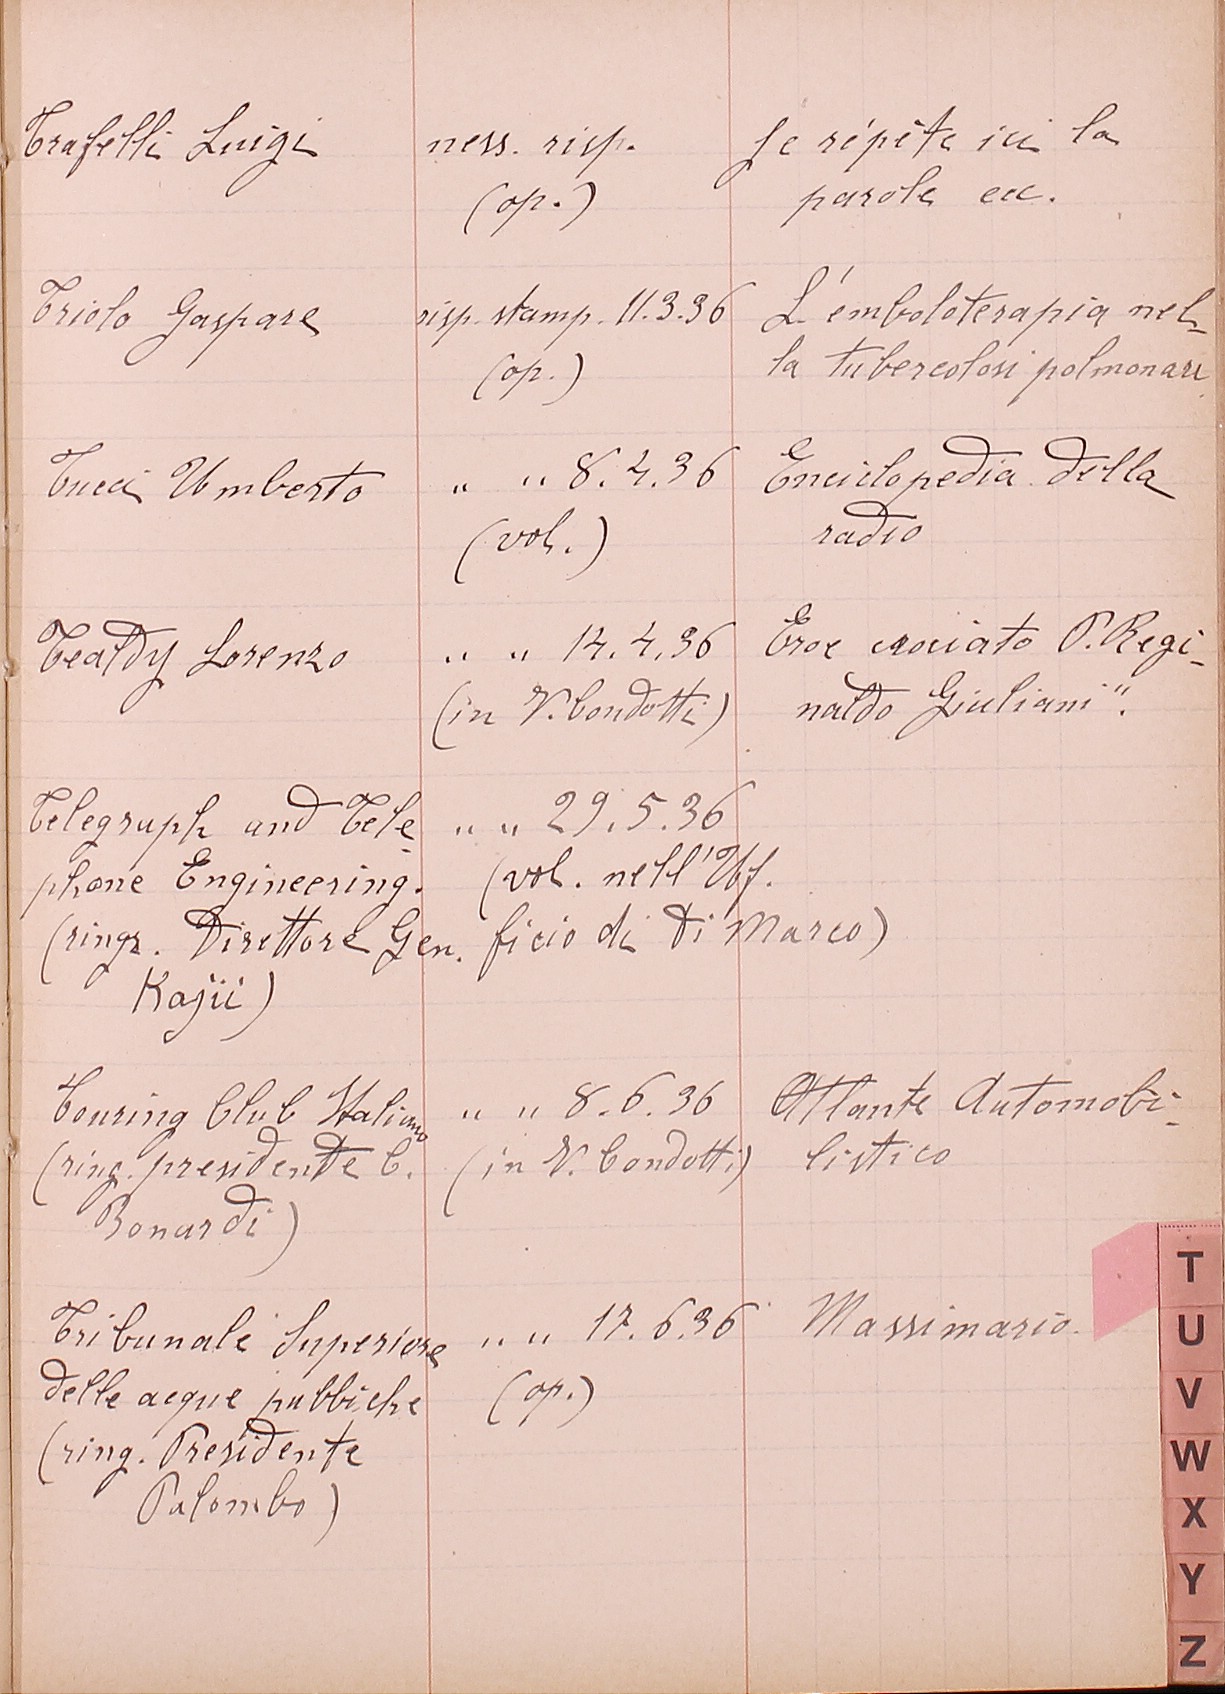 Trafelli Luigi ness. risp. Je répète ici la
(op.) parole ecc.
Triolo Gaspare risp. stamp. 11.3.36 L'emboloterapia nel-
(op.) la tubercolosi polmonare
Tucci Umberto " " 8.4.36 Enciclopedia della
(vol.) radio
Tealdy Lorenzo " " 14.4.36 Eroe crociato P. Regi-
(in V. Condotti) naldo Giuliani".
Telegraph and Tele- " " 29.5.36
phone Engineering. (vol. nell'Uf-
(ringr. Direttore Gen. ficio di Di Marco)
Kajii)
Touring Club Italiano " " 8.6.36 Atlante Automobi-
(ring. presidente C. (in V. Condotti) listico
Bonardi)
Tribunale Superiore " " 17.6.36 Massimario.
delle acque pubbliche (op.)
(ring. Presidente
Palombo)
T
U
V
W
X
Y
Z